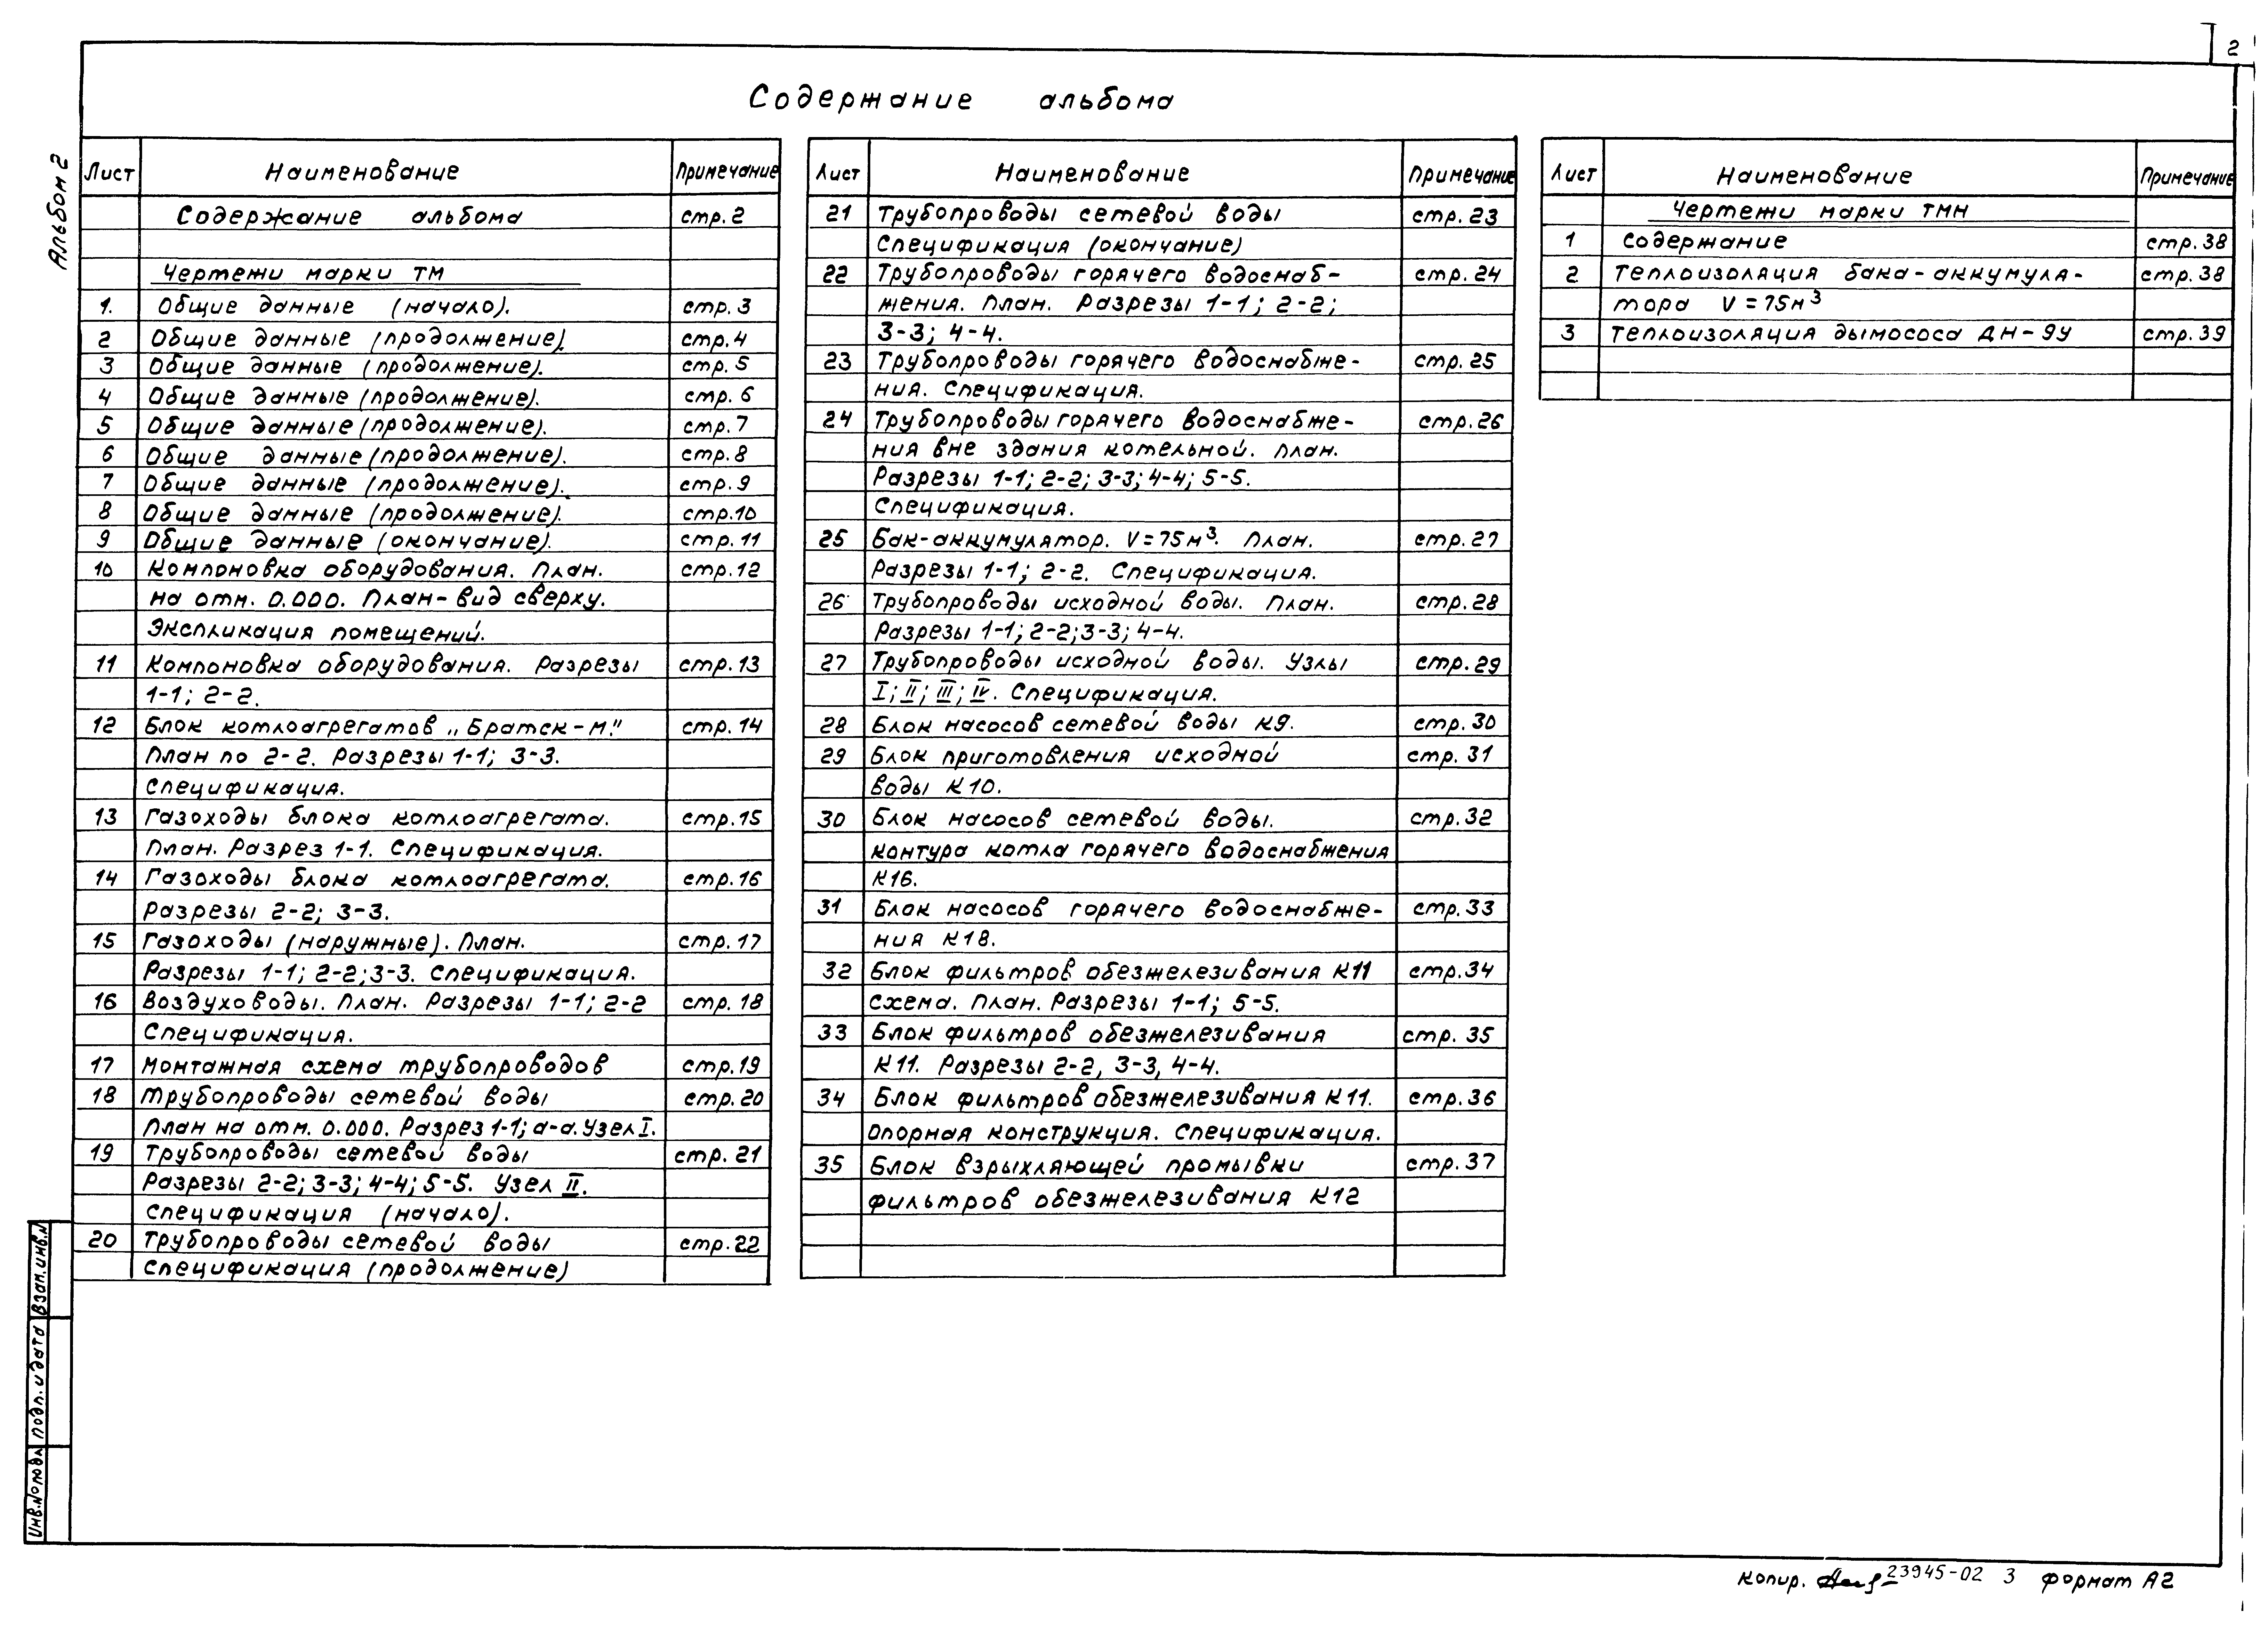 2
Содержание альбома
Альбом 2
Лист Наименование Примечание
Содержание альбома стр. 2
Чертежи марки ТМ
1. Общие данные (начало). стр. 3
2 Общие данные (продолжение). стр. 4
3 Общие данные (продолжение). стр. 5
4 Общие данные (продолжение). стр. 6
5 Общие данные (продолжение). стр. 7
6 Общие данные (продолжение). стр. 8
7 Общие данные (продолжение). стр. 9
8 Общие данные (продолжение). стр. 10
9 Общие данные (окончание). стр. 11
10 Компоновка оборудования. План. стр. 12
на отм. 0.000. План-вид сверху.
Экспликация помещений.
11 Компоновка оборудования. Разрезы стр. 13
1-1; 2-2.
12 Блок котлоагрегатов „Братск-М." стр. 14
План по 2-2. Разрезы 1-1; 3-3.
Спецификация.
13 Газоходы блока котлоагрегата. стр. 15
План. Разрез 1-1. Спецификация.
14 Газоходы блока котлоагрегата. стр. 16
Разрезы 2-2; 3-3.
15 Газоходы (наружные). План. стр. 17
Разрезы 1-1; 2-2; 3-3. Спецификация.
16 Воздуховоды. План. Разрезы 1-1; 2-2 стр. 18
Спецификация.
17 Монтажная схема трубопроводов стр. 19
18 Трубопроводы сетевой воды стр. 20
План на отм. 0.000. Разрез 1-1; а-а. Узел I.
19 Трубопроводы сетевой воды стр. 21
Разрезы 2-2; 3-3; 4-4; 5-5. Узел II.
Спецификация (начало).
20 Трубопроводы сетевой воды стр. 22
Спецификация (продолжение)
Лист Наименование Примечание
21 Трубопроводы сетевой воды стр. 23
Спецификация (окончание)
22 Трубопроводы горячего водоснаб- стр. 24
жения. План. Разрезы 1-1; 2-2;
3-3; 4-4.
23 Трубопроводы горячего водоснабже- стр. 25
ния. Спецификация.
24 Трубопроводы горячего водоснабже- стр. 26
ния вне здания котельной. План.
Разрезы 1-1; 2-2; 3-3; 4-4; 5-5.
Спецификация.
25 Бак-аккумулятор. V=75м³. План. стр. 27
Разрезы 1-1; 2-2. Спецификация.
26 Трубопроводы исходной воды. План. стр. 28
Разрезы 1-1; 2-2; 3-3; 4-4.
27 Трубопроводы исходной воды. Узлы стр. 29
I; II; III; IV. Спецификация.
28 Блок насосов сетевой воды К9. стр. 30
29 Блок приготовления исходной стр. 31
воды К10.
30 Блок насосов сетевой воды. стр. 32
контура котла горячего водоснабжения
К16.
31 Блок насосов горячего водоснабже- стр. 33
ния К18.
32 Блок фильтров обезжелезивания К11 стр. 34
Схема. План. Разрезы 1-1; 5-5.
33 Блок фильтров обезжелезивания стр. 35
К11. Разрезы 2-2, 3-3, 4-4.
34 Блок фильтров обезжелезивания К11. стр. 36
Опорная конструкция. Спецификация.
35 Блок взрыхляющей промывки стр. 37
фильтров обезжелезивания К12
Лист Наименование Примечание
Чертежи марки ТМН
1 Содержание стр. 38
2 Теплоизоляция бака-аккумуля- стр. 38
тора V=75м³
3 Теплоизоляция дымососа ДН-9У стр. 39
Инв.№подл. Подп. и дата Взам.инв.№
Копир. 23945-02 3 Формат А2